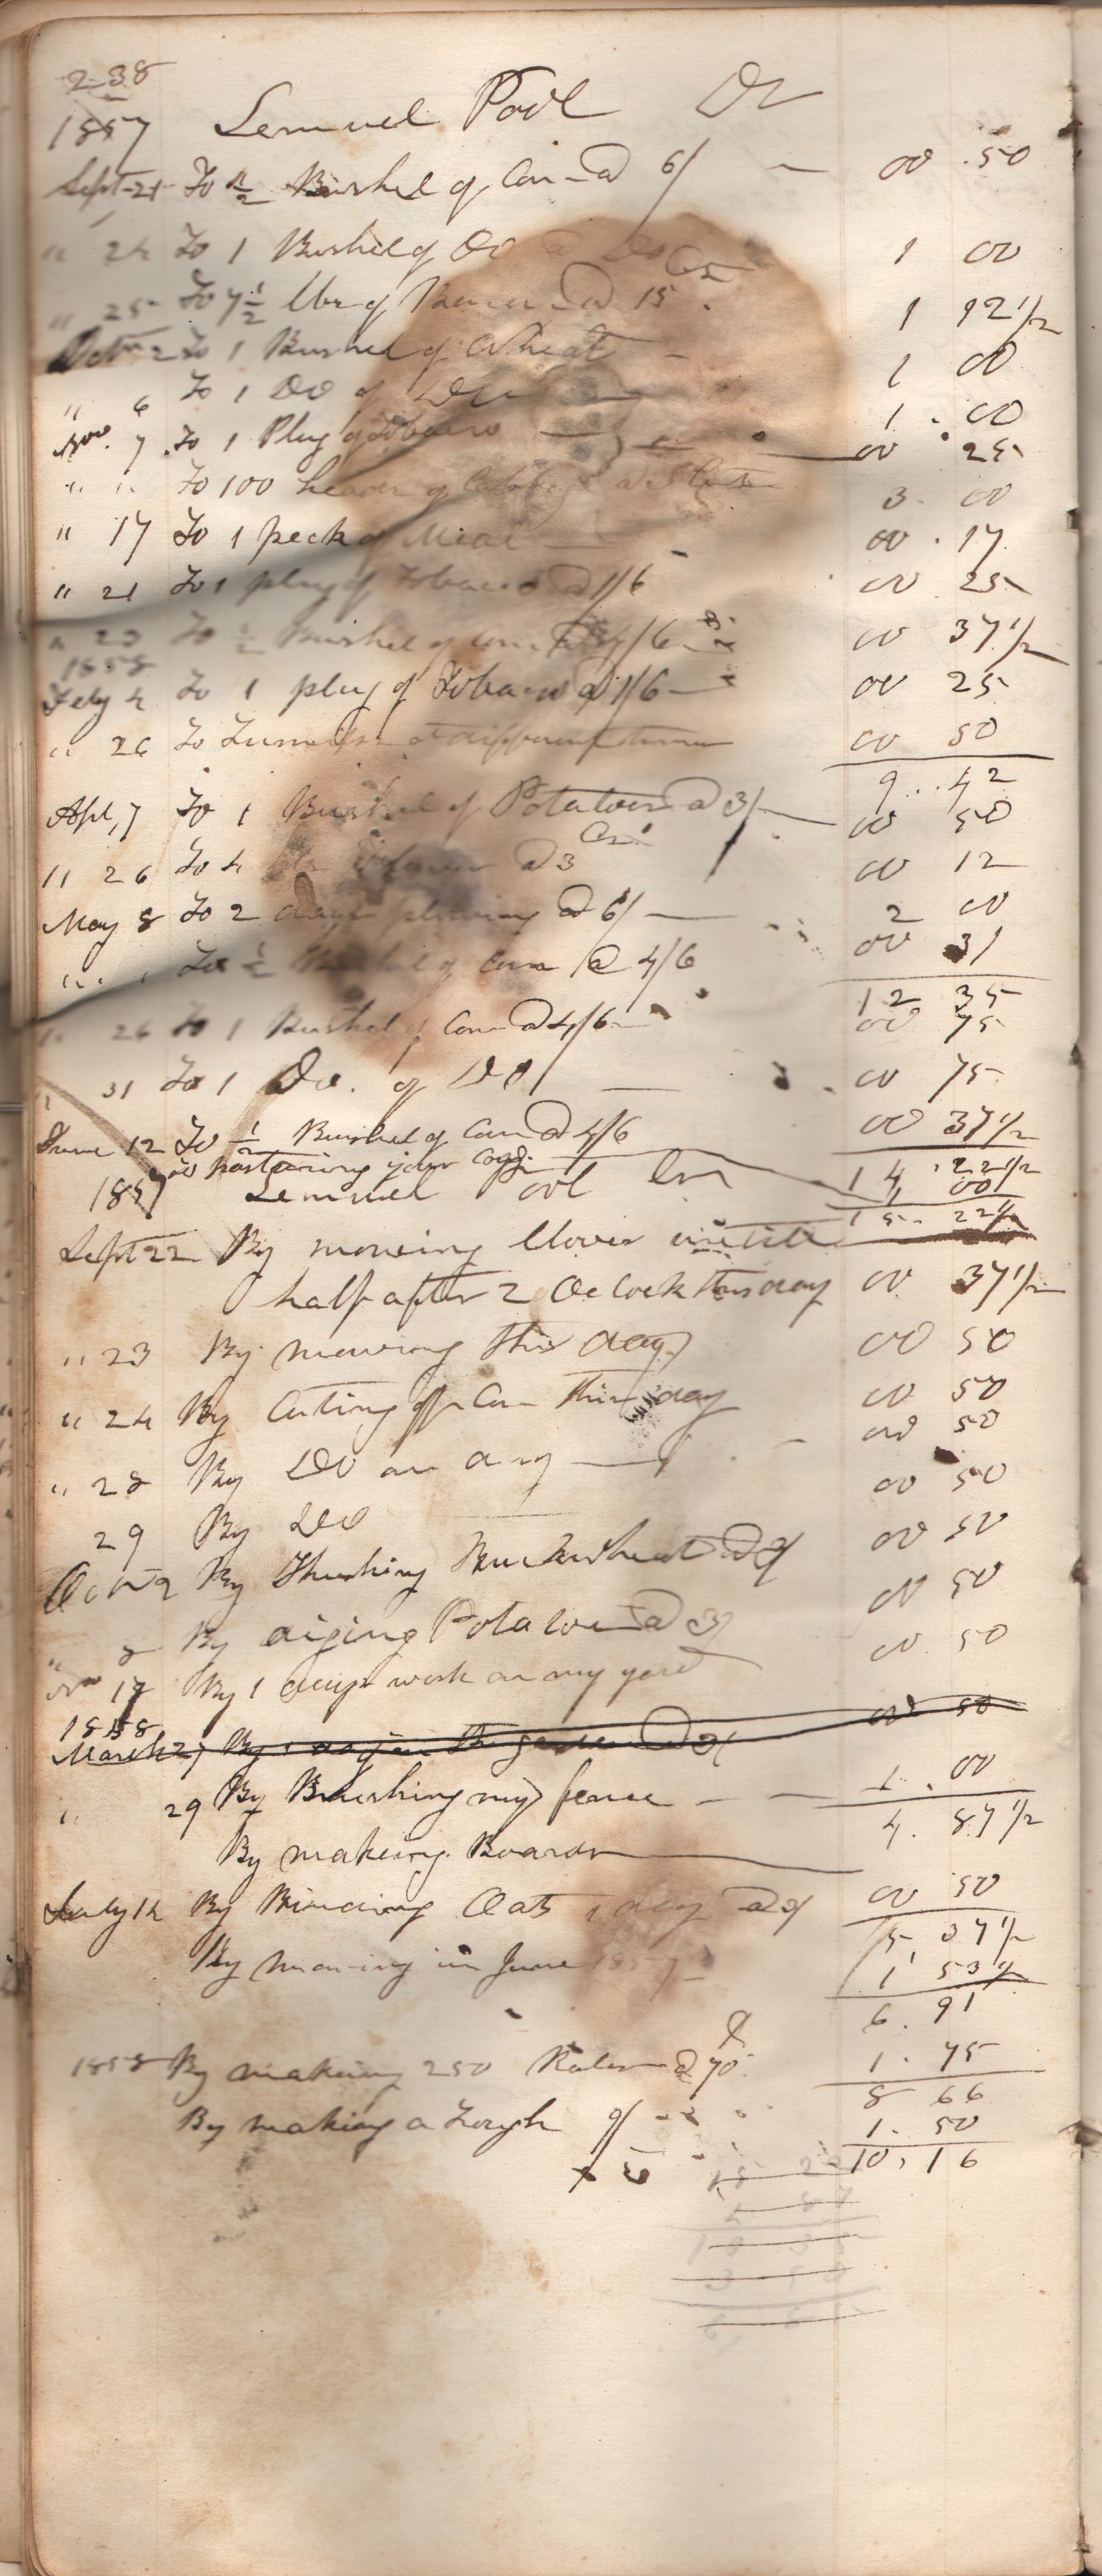 238
1857 Lemuel Pool Dr
Sept 21 To ½ Bushel of Corn @ 6/ 00 .50
" 24 To 1 Bushel of Do @ Do 1 00
" 25 To 7½ lbs of Bacon @ 15 Cts. 1 12 1/2
Oct 2 To 1 Bushel of Wheat – 1 00
" 6 To 1 Do of Do 1 . 00
Nov. 7 To 1 Plug of Tobacco 00 25
" " To 100 heads of Cabbage @ 3 Cents 3. 00
" 17 To 1 peck of Meal 00 . 17
" 21 To 1 plug of Tobacco @ 1/6 00 . 25
" 23 To ½ Bushel of Corn @ 4/6 00 37 1/2
1858
Feby 4 To 1 plug of Tobacco @ 1/6 00 25
" 26 To at different times 00 50
9 .. 42
Apl, 7 To 1 Bushel of Potatoes @ 3/ 00 50
" 26 To 4 @ 3 Cts. 00 12
May 8 To 2 days plowing @ 6/ 2 00
" " To ½ Bushel of Corn @ 4/6 00 31
12 35
" 26 To 1 Bushel of Corn @ 4/6 00 75
" 31 To 1 Do. of Do 00 75
June 12 To ½ Bushel of Corn @ 4/6 00 37 1/2
To pasturing your 14 . 22 1/2
1857 Lemuel Pool Cr 1, 00
15. 22 1/2
Sept 22 By mowing Clover untill
half after 2 Oclock this day 00 37 1/2
" 23 By mowing this day 00 50
" 24 By Cuting off Corn this day 00 50
" 28 By Do on day 00 50
29 By Do 00 50
Oct 2 By Thrashing Buckwheat @ 3/ 00 50
" 8 By diging Potatoes @ 3/ 00 50
Nov 17 By 1 days work on my yard 00 . 50
1858
March 27 By 1 day in the garden @ 3/ 00 50
" 29 By Brushing my fence – – 1 . 00
4. 87 1/2
By making Boards
July 14 By Binding Oats 1 day @ 3/ 00 50
5 37 1/2
By mowing in June 1857 1 53 1/2
6 . 91
1858 By making 250 Rales @ 70 1 . 75
8 66
By making a Trough 9/ 1. 50
10, 16